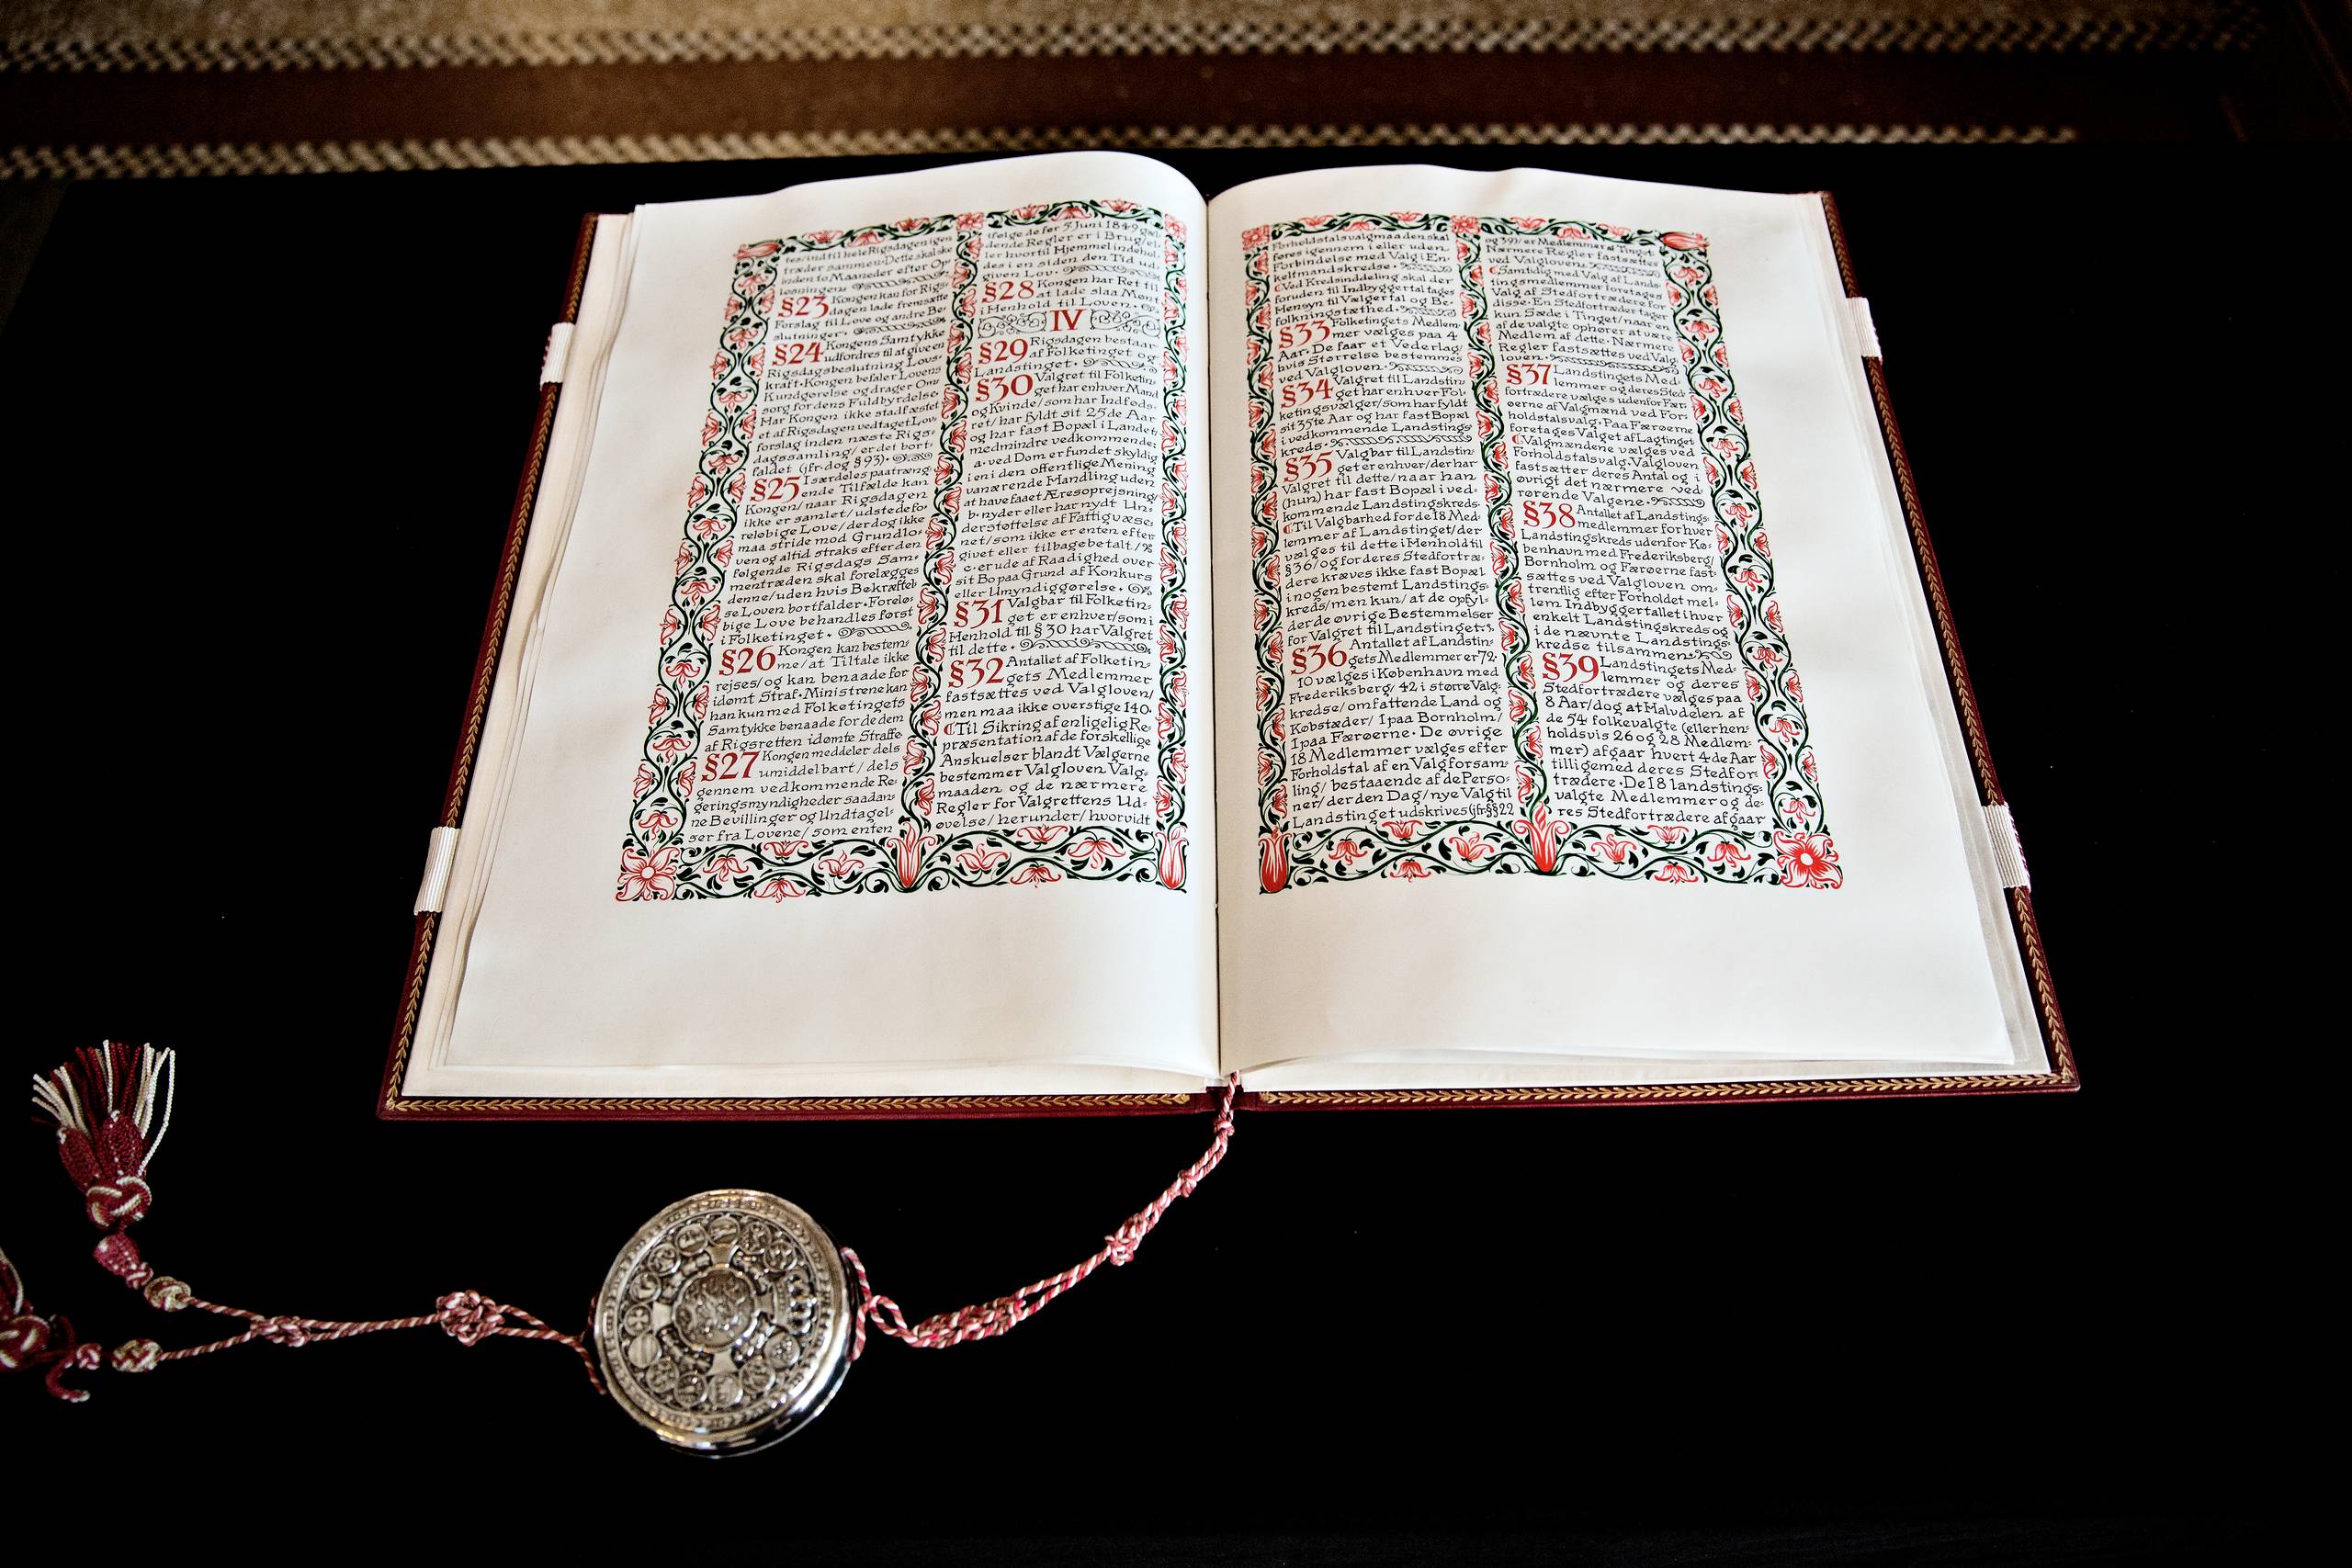 tes/indtil hele Rigsdagen igen
træder sammen. Dette skal ske
inden to Maaneder efter Op=
løsningen.
§23 Kongen kan for Rigs=
dagen lade fremsætte
Forslag til Love og andre Be=
slutninger.
§24 Kongens Samtykke
udfordres til at give en
Rigsdagsbeslutning Lovs=
kraft. Kongen befaler Lovens
Kundgørelse og drager Om=
sorg for dens Fuldbyrdelse.
Har Kongen ikke stadfæstet
et af Rigsdagen vedtaget Lov=
forslag inden næste Rigs=
dagssamling/ er det bort=
faldet (jfr. dog § 93).
§25 I særdeles paatræng=
ende Tilfælde kan
Kongen/ naar Rigsdagen
ikke er samlet/ udstede fo=
reløbige Love/ der dog ikke
maa stride mod Grundlo=
ven og altid straks efter den
følgende Rigsdags Sam=
mentræden skal forelægges
denne/ uden hvis Bekræftel=
se Loven bortfalder. Forelø=
bige Love behandles først
i Folketinget.
§26 Kongen kan bestem=
me/ at Tiltale ikke
rejses/ og kan benaade for
idømt Straf. Ministrene kan
han kun med Folketingets
Samtykke benaade for de dem
af Rigsretten idømte Straffe
§27 Kongen meddeler dels
umiddelbart/ dels
gennem vedkommende Re=
geringsmyndigheder saadan=
ne Bevillinger og Undtagel=
ser fra Lovene/ som enten
ifølge de før 5. Juni 1849 gæl=
dende Regler er i Brug/ el=
ler hvortil Hjemmel indehol=
des i en siden den Tid ud=
given Lov.
§28 Kongen har Ret til
at lade slaa Mønt
i Henhold til Loven.
IV
§29 Rigsdagen bestaar
af Folketinget og
Landstinget.
§30 Valgret til Folketin=
get har enhver Mand
og Kvinde/ som har Indføds=
ret/ har fyldt sit 25de Aar
og har fast Bopæl i Landet/
medmindre vedkommende:
a. ved Dom er fundet skyldig
i en i den offentlige Mening
vanærende Handling uden
at have faaet Æresoprejsning/
b. nyder eller har nydt Un=
derstøttelse af Fattigvæse=
net/ som ikke er enten efter=
givet eller tilbagebetalt/
c. er ude af Raadighed over
sit Bo paa Grund af Konkurs
eller Umyndiggørelse.
§31 Valgbar til Folketin=
get er enhver/ som i
Henhold til § 30 har Valgret
til dette.
§32 Antallet af Folketin=
gets Medlemmer
fastsættes ved Valgloven/
men maa ikke overstige 140.
Til Sikring af en ligelig Re=
præsentation af de forskellige
Anskuelser blandt Vælgerne
bestemmer Valgloven Valg=
maaden og de nærmere
Regler for Valgrettens Ud=
øvelse/ herunder/ hvorvidt
Forholdstalsvalgmaaden skal
føres igennem i eller uden
Forbindelse med Valg i En=
keltmandskredse.
Ved Kredsinddeling skal der
foruden til Indbyggertal tages
Hensyn til Vælgertal og Be=
folkningstæthed.
§33 Folketingets Medlem=
mer vælges paa 4
Aar. De faar et Vederlag/
hvis Størrelse bestemmes
ved Valgloven.
§34 Valgret til Landstin=
get har enhver Fol=
ketingsvælger/ som har fyldt
sit 35te Aar og har fast Bopæl
i vedkommende Landstings=
kreds.
§35 Valgbar til Landstin=
get er enhver/ der har
Valgret til dette/ naar han
(hun) har fast Bopæl i ved=
kommende Landstingskreds.
Til Valgbarhed for de 18 Med=
lemmer af Landstinget/ der
vælges til dette i Henhold til
§36/ og for deres Stedfortræ=
dere kræves ikke fast Bopæl
i nogen bestemt Landstings=
kreds/ men kun/ at de opfyl=
der de øvrige Bestemmelser
for Valgret til Landstinget.
§36 Antallet af Landstin=
gets Medlemmer er 72.
10 vælges i København med
Frederiksberg/ 42 i større Valg=
kredse/ omfattende Land og
Købstæder/ 1 paa Bornholm/
1 paa Færøerne. De øvrige
18 Medlemmer vælges efter
Forholdstal af en Valgforsam=
ling/ bestaaende af de Perso=
ner/ der den Dag/ nye Valg til
Landstinget udskrives (jfr §§ 22
og 39)/ er Medlemmer af Tinget.
Nærmere Regler fastsættes
ved Valgloven.
Samtidig med Valg af Lands=
tingsmedlemmer foretages
Valg af Stedfortrædere for
disse. En Stedfortræder tager
kun Sæde i Tinget/ naar en
af de valgte ophører at være
Medlem af dette. Nærmere
Regler fastsættes ved Valg=
loven.
§37 Landstingets Med=
lemmer og deres Sted=
fortrædere vælges udenfor Fær=
øerne af Valgmænd ved For=
holdstalsvalg. Paa Færøerne
foretages Valget af Lagtinget
Valgmændene vælges ved
Forholdstalsvalg. Valgloven
fastsætter deres Antal og i
øvrigt det nærmere ved=
rørende Valgene.
§38 Antallet af Landstings=
medlemmer for hver
Landstingskreds udenfor Kø=
benhavn med Frederiksberg/
Bornholm og Færøerne fast=
sættes ved Valgloven om=
trentlig efter Forholdet mel=
lem Indbyggertallet i hver
enkelt Landstingskreds og
i de nævnte Landstings=
kredse tilsammen.
§39 Landstingets Med=
lemmer og deres
Stedfortrædere vælges paa
8 Aar/ dog at Halvdelen af
de 54 folkevalgte (eller hen=
holdsvis 26 og 28 Medlem=
mer) afgaar hvert 4de Aar
tilligemed deres Stedfor=
trædere. De 18 landstings=
valgte Medlemmer og de=
res Stedfortrædere afgaar